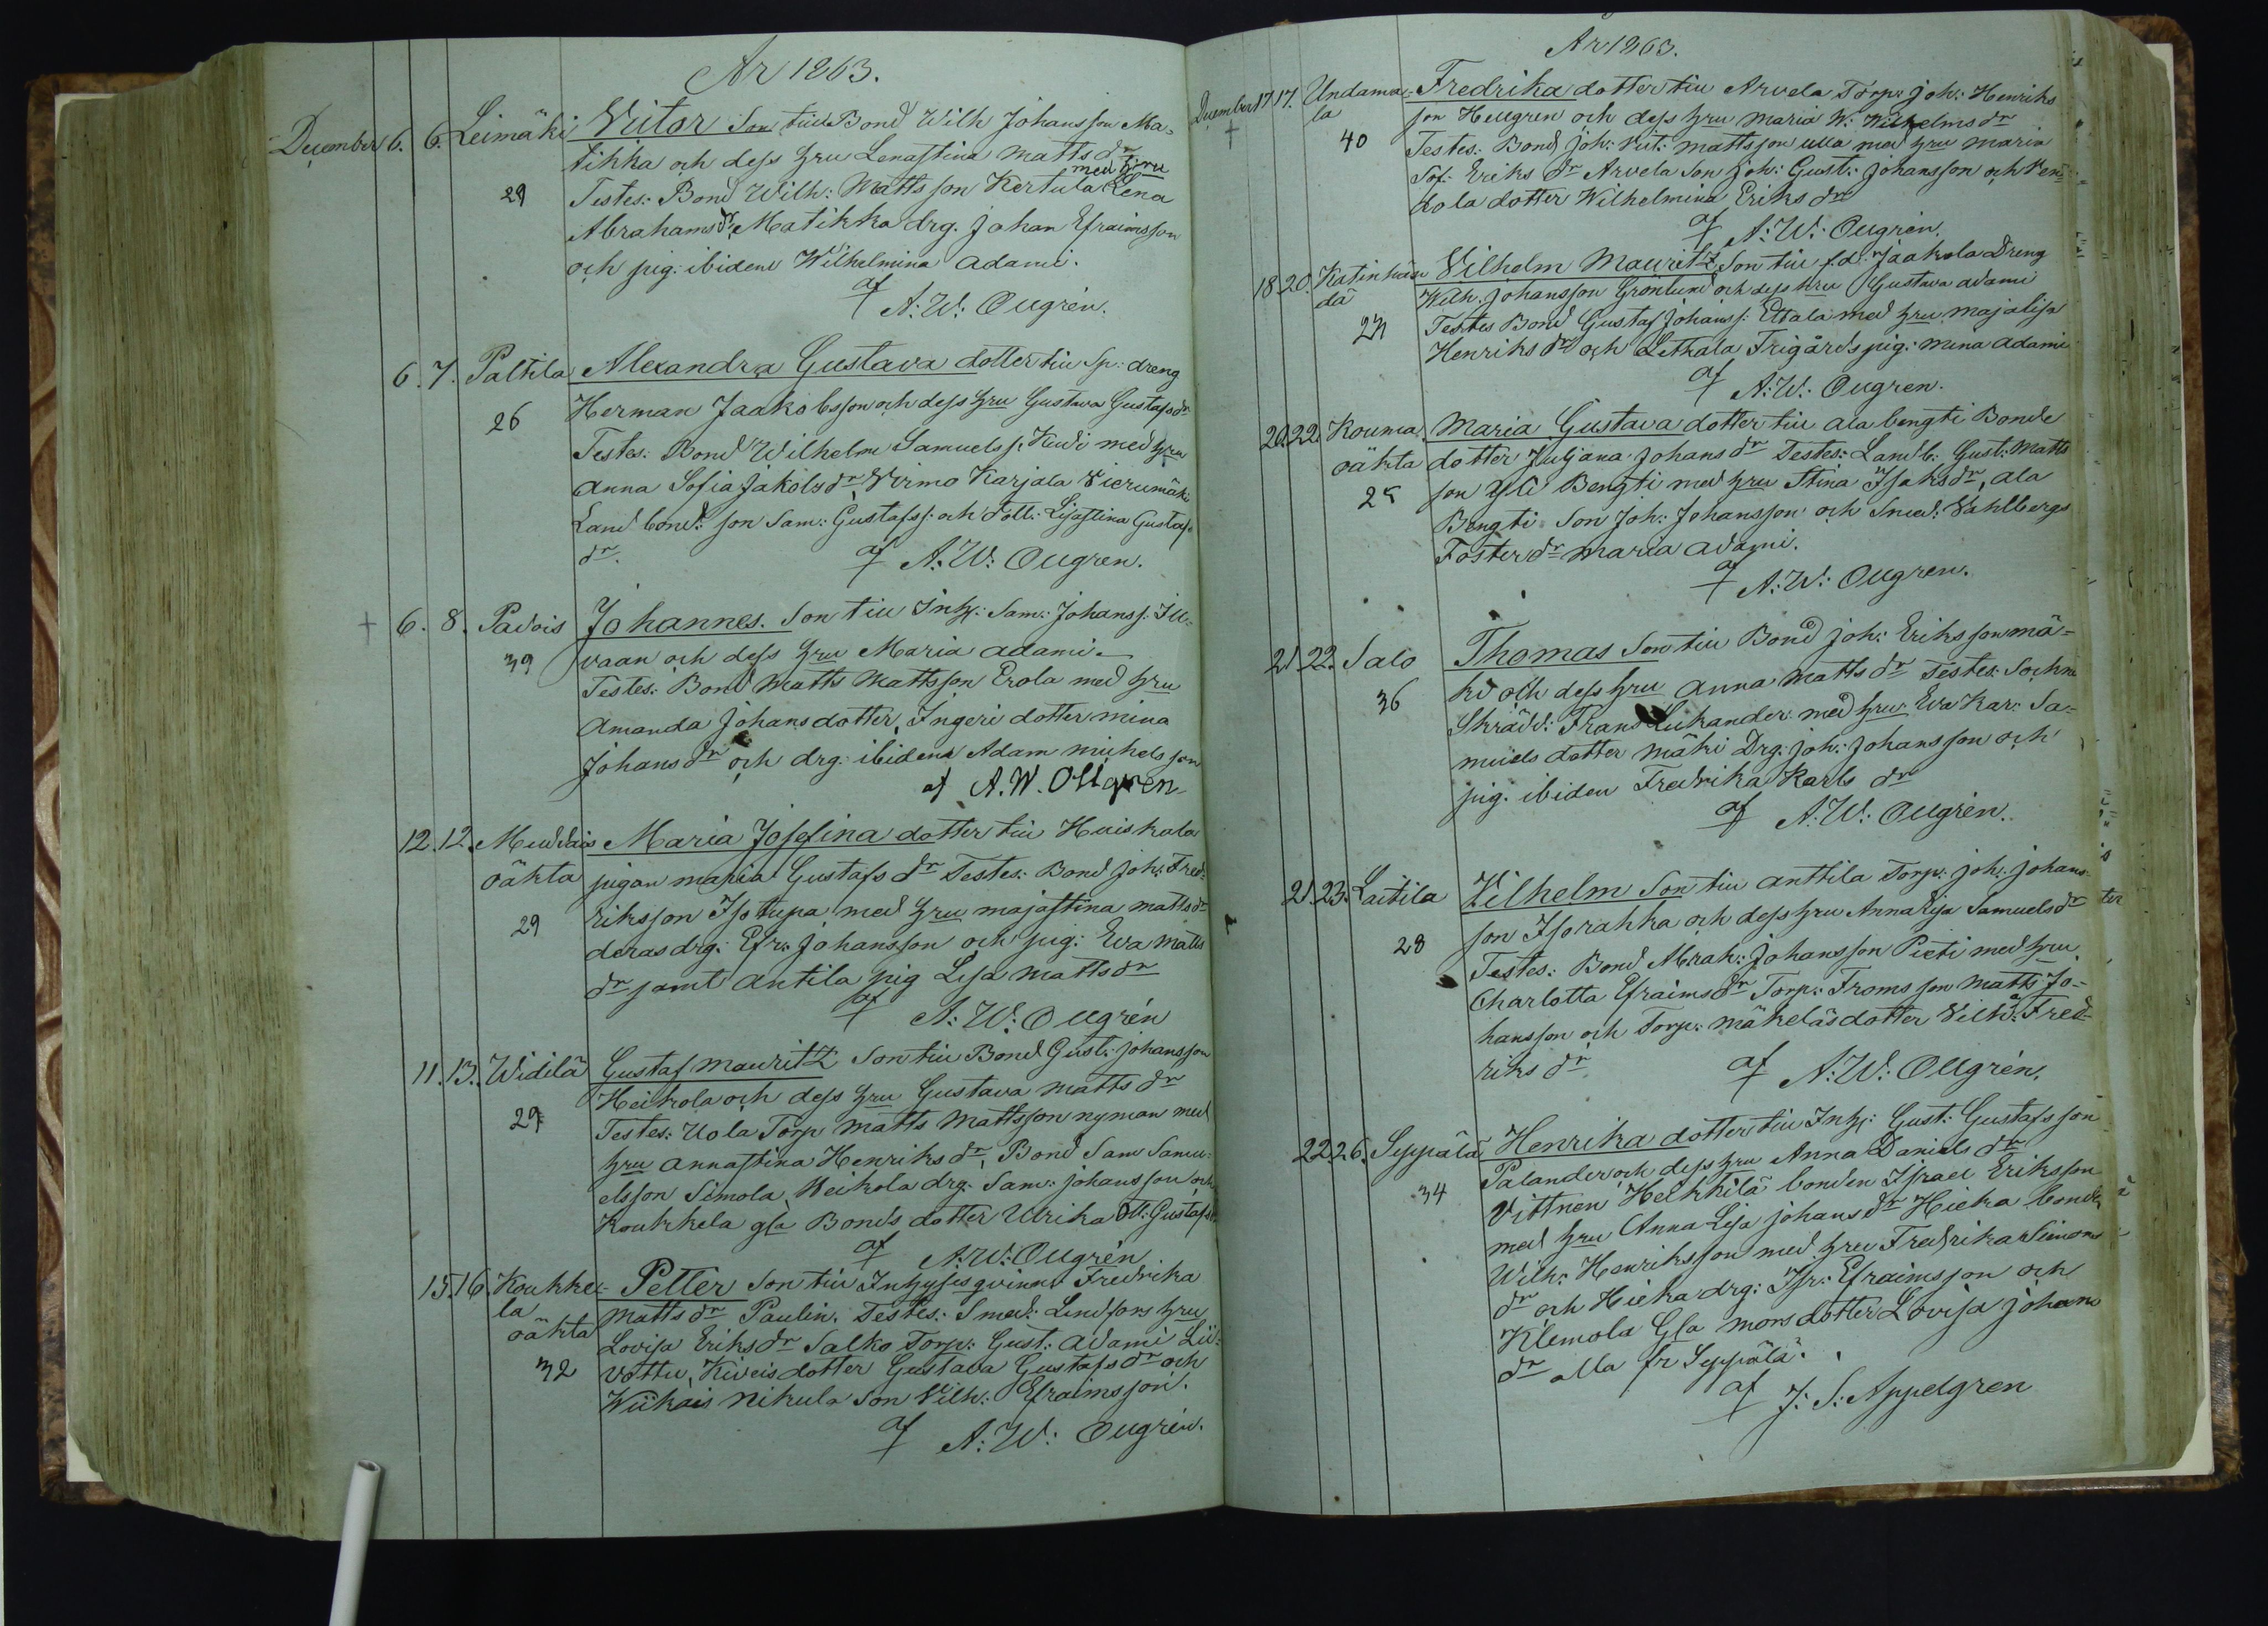 År 1863.
December 6. 6. Leimäki Victor Son till Bond Wilh Johansson Ma-
tikka och dess hru Lenastina Matts dr
med hru
29 Testes: Bond Wilh: Mattsson Kertula Lena
Abrahams dr, Matikka drg. Johan Efraimsson
och pig: ibidem Wilhelmina Adami.
af A: W: Ollgrén.
6. 7. Paltila Alexandra Gustava dotter till Sp: dreng
26 Herman Jaakobsson och dess hru Gustava Gustafs dr
Testes: Bond Wilhelm Samuelss: Kudi med hru
Anna Sofia Jakobs dr, Virmo Karjala Vierumäki
Land bond: son Sam: Gustafss: och dott: Lisastina Gustafs
dr. af A: W: Ollgren.
+ 6. 8. Padois Johannes. Son till Inh: Sam: Johanss: Ju-
39 vaan och dess hru Maria Adami.
Testes: Bond Matts Mattsson Erola med hru
Amanda Johans dotter, Ingeri dotter Mina
Johans dr och drg. ibidem Adam Michelsson
af A. W. Ollgren
12. 12. Muddais Maria Josefina dotter till Huiskala
oäkta pigan Maria Gustafs dr Testes: Bond Joh: Fred-
29 riksson Isotupa med hru Majastina Matts dr
deras drg: Efr: Johansson och pig: Eva Matts
dr samt Antila pig Lisa Matts dr
af A: W: Ollgrén
11. 13. Widilä Gustaf Mauritz Son till Bond Gust: Johansson
Heikola och dess hru Gustava Matts dr
29 Testes: Uola Torp Matts Mattsson Nyman med
hru Annastina Henriks dr, Bond Sam Samu-
elsson Simola, Heikola drg. Sam: Johansson och
Koukkela gla Bonds dotter Ulrika M: Gustafs
af A: W: Ollgrén
15. 16. Koukke- Petter Son till Inhyses qvinna Fredrika
la Matts dr Paulin. Testes: Smed: Lindfors hru
oäkta Lovisa Eriks dr Salko Torp: Gust: Adami Lii-
32 vottu, Kiveis dotter Gustava Gustafs dr och
Wiikais Nikula Son Vilh: Efraimsson.
af A: W: Ollgrén.
År 1863.
December 17 17. Undama- Fredrika dotter till Arvela Torp: Joh: Henriks
+ la son Hellgren och dess hru Maria W: Wilhelms dr
40 Testes: Bond Joh: Vict: Mattsson Ulla med hru Maria
Sof: Eriks dr Arvela Son Joh: Gust: Johansson och Pen-
kola dotter Wilhelmina Eriks dr
af A: W: Ollgrén.
18. 20. Katinhän- Vilhelm Mauritz Son till f.d. Jaakola Dreng
dä Wilh. Johansson Grönlund och dess hru Gustava Adami
27 Testes Bond Gustaf Johanss: Ettala med hru Majalisa
Henriks dr och Letkala Frigårds pig: Mina Adami
af A: W: Ollgren.
20. 22. Kouma Maria Gustava dotter till Ala bengti Bonde
oäkta dotter Juljana Johans dr Testes: Landb: Gust: Matts
25 son Yli Bengti med hru Stina Isaks dr, Ala
Bengti Son Joh: Johansson och Smed: Vahlbergs
Foster dr Maria Adami.
af A: W: Ollgren.
21. 22. Salo Thomas Son till Bond Joh: Eriksson Mä-
36 ki och dess hru Anna Matts dr Testes: Sockne
Skrädd: Frans Lukander med hru Eva Kar: Sa-
muels dotter Mäki Drg: Joh: Johansson och
pig. ibidem Fredrika Karls dr
af A: W: Ollgrén.
21. 23. Laitila Vilhelm Son till Anttila Torp: Joh: Johans-
son Isorahka och dess hru Anna Lisa Samuels dr
28 Testes: Bond Abrah: Johansson Pieti med hru
Charlotta Efraims dr Torp: Froms son Matts Jo-
hansson och Torp: Mäkeläs dotter Vilh:a Fred-
riks dr
af A: W: Ollgrén.
22. 26. Seppälä Henrika dotter till Inh: Gust: Gustafsson
Palander och dess hru Anna Daniels dr
34 Vittnen Heikkilä bonden Israel Eriksson
med hru Anna Lisa Johans dr Hieka bonden
Wilh: Henriksson med hru Fredrika Simons
dr och Hieka drg: Isr: Efraimsson och
Klemola Gla mors dotter Lovisa Johans
dr alla fr Seppälä.
af J: S: Appelgren